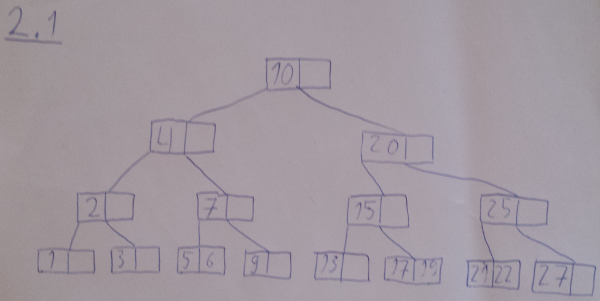 2.1
10
4 20
2 7 15 25
1 3 5 6 9 13 17 19 21 22 27